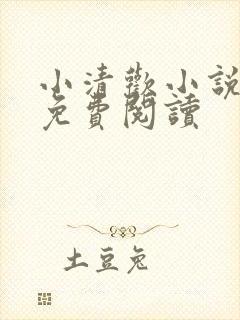 小清歡小說
免費閱讀
土豆兔